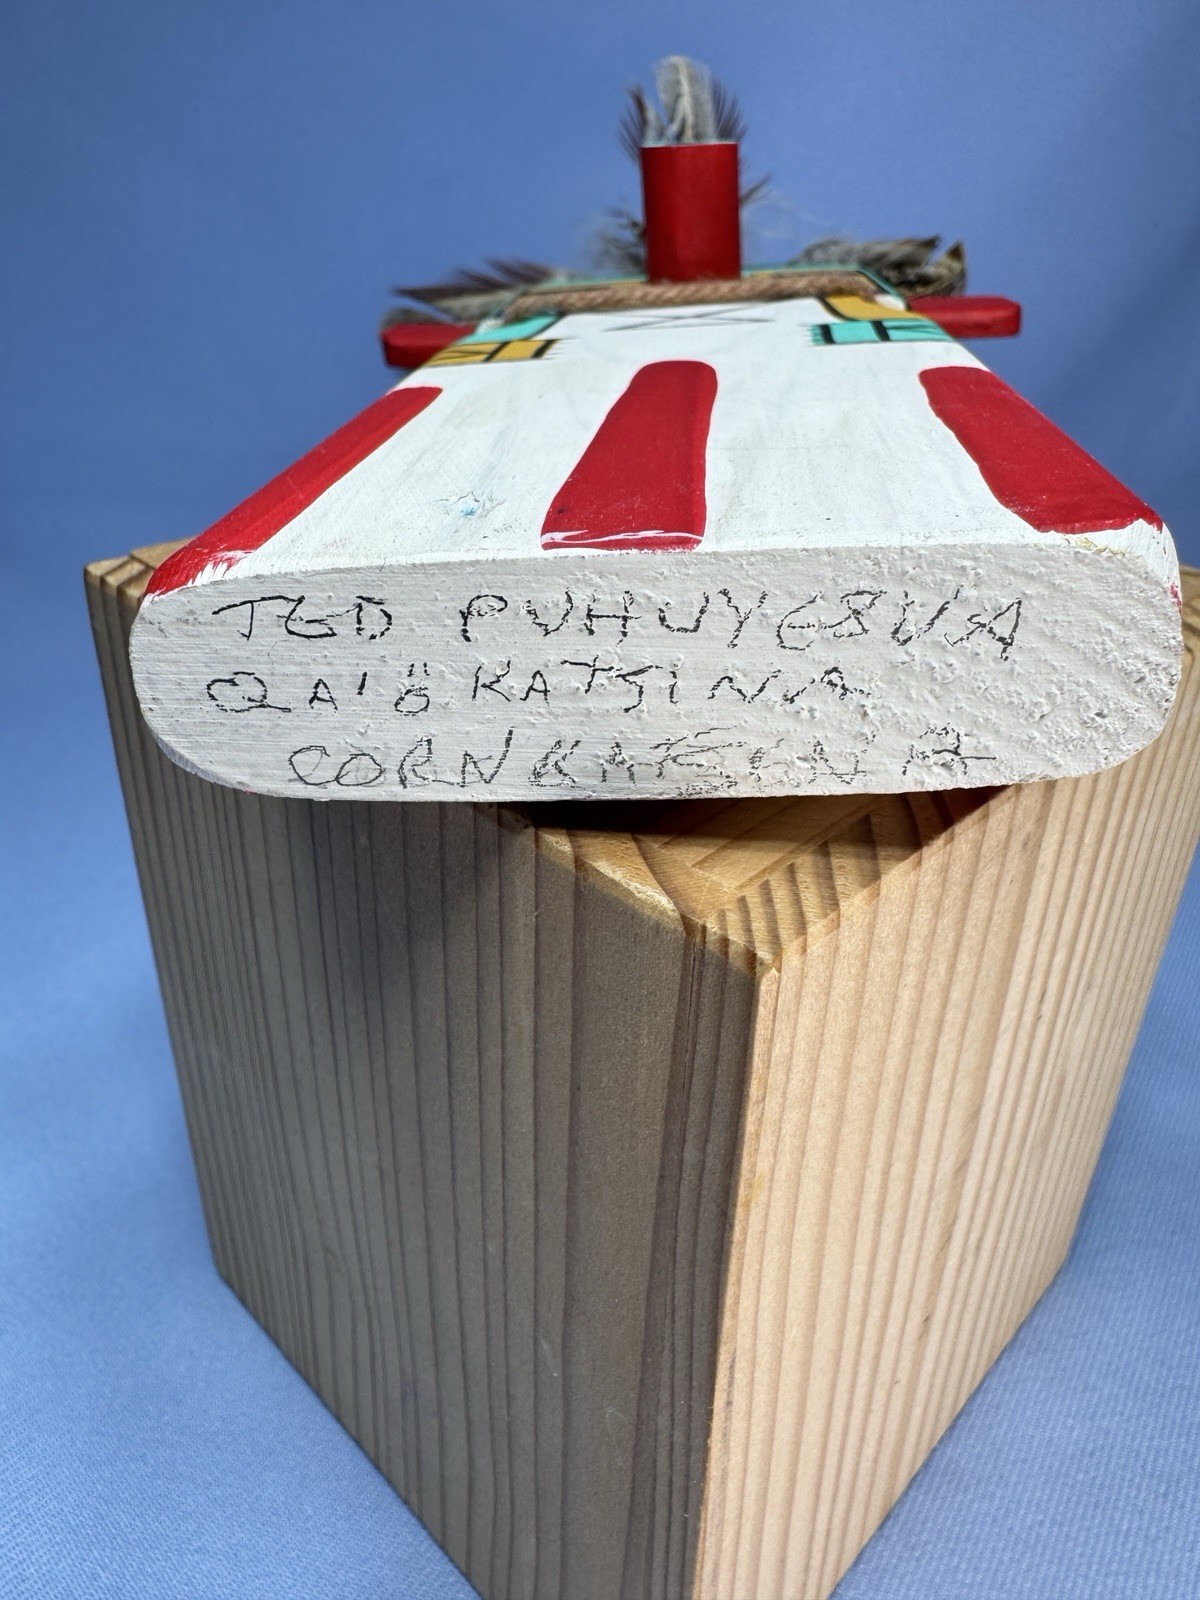 TED PUHUYESUA
QA'Ö KATSINA
CORN KATSINA